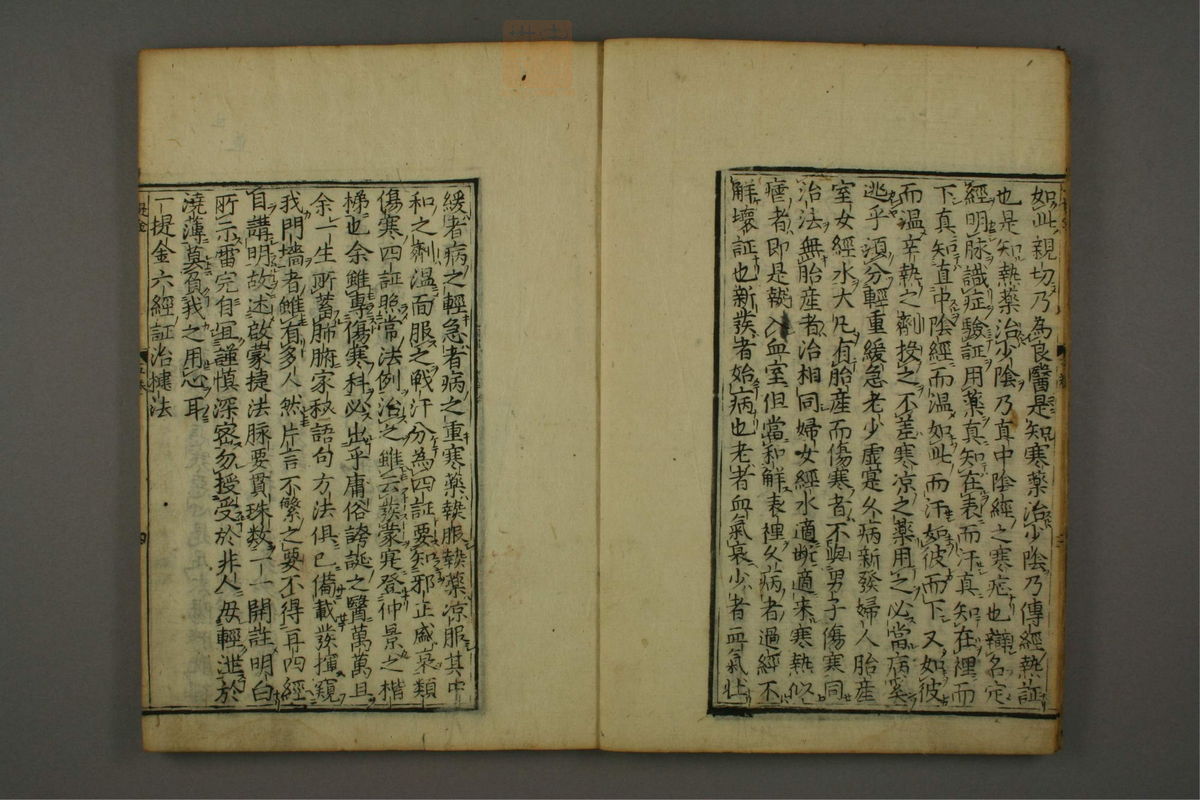 如此親切乃為良醫是知寒薬治少陰乃傳經熱証
也是知熱藥治少陰乃直中陰經之寒症也辯名定
經明脉識症驗証用薬真知在表而汗真知在裡而
下真知直中陰經而温如此而汗如彼而下又如彼
而温辛熱之劑投之不差寒凉之薬用之必當病奚
逃乎須分輕重緩急老少虛寔久病新發婦人胎産
室女經水大凡有胎産而傷寒者不與男子傷寒同
治法無胎産者治相同婦女經水適断適来寒熱似
瘧者即是熱入血室但當和解表裡久病者過經不
解壞証也新發者始病也老者血氣衰少者血氣壮
緩者病之輕急者病之重寒薬熱服熱薬凉服其中
和之劑温而服之戦汗分為四証要知邪正盛衰類
傷寒四証照常法例治之雖云發蒙寔登仲景之楷
梯也余雖專傷寒科必出乎庸俗誇誕之醫萬萬且
余一生所蓄肺腑家秘語句方法俱已備載發揮窺
我門墻者雖有多人然片言不繁之要不得耳四經
自講明故述啟蒙捷法脉要貫珠数一一開註明白
所示雷完自宜謹慎深密勿授受於非人毋輕泄於
澆薄莫負我之用心耳
一提金六經証治捷法